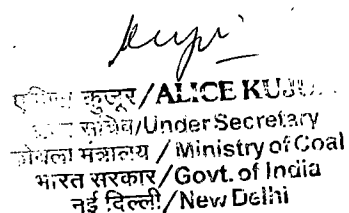 कुजूर/ALICE
सचिव/Under Secretary
मंत्रालय / Ministry of Coal
भारत सरकार/Govt. of India
नई दिल्ली/New Delhi